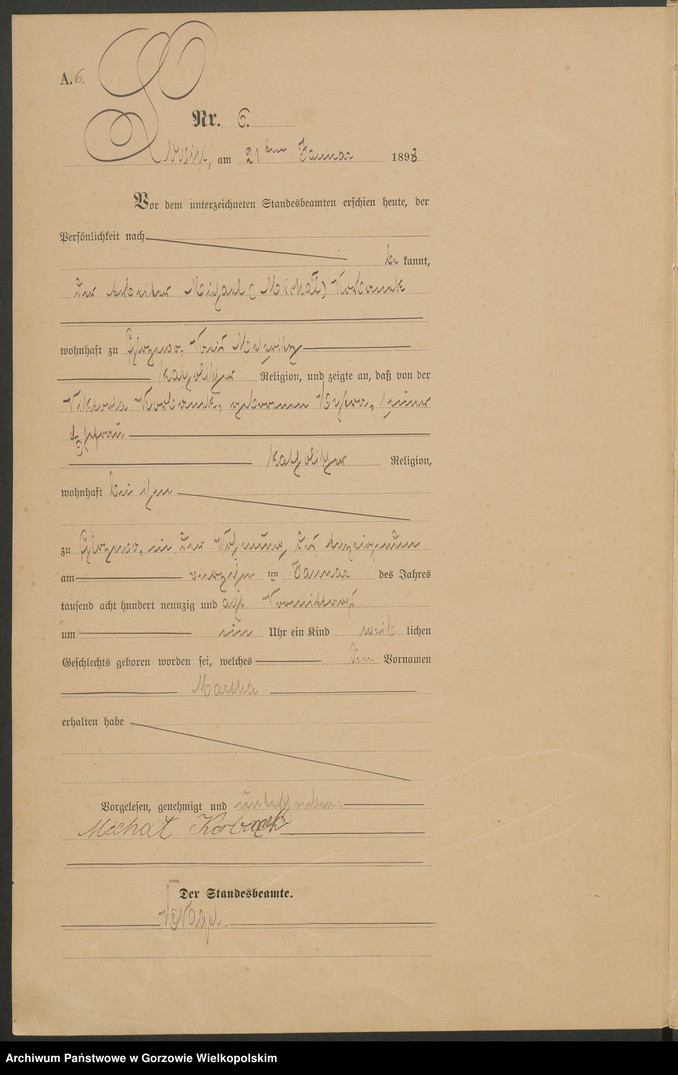 A. 6.
Nr. 6.
am 21ten Januar 1898
Vor dem unterzeichneten Standesbeamten erschien heute, der
Persönlichkeit nach
be kannt,
der Arbeiter Michael (Michał) Korbanek
wohnhaft zu Kreis Meseritz
katholischer Religion, und zeigte an, daß von der
Viktoria Korbanek, geborenen seiner
Ehefrau
katholischer Religion,
wohnhaft bei ihm
zu in der Wohnung des Anzeigenden
am vierzehn ten Januar des Jahres
tausend acht hundert neunzig und acht Vormittags
um ein Uhr ein Kind weib lichen
Geschlechts geboren worden sei, welches den Vornamen
Martha
erhalten habe
Vorgelesen, genehmigt und unterschrieben
Michał Korbanek
Der Standesbeamte.
Archiwum Państwowe w Gorzowie Wielkopolskim